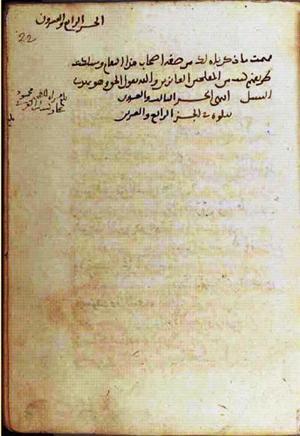 الجزء الرابع والعشرون
22
فهمت ما ذكرناه لك من صفة اصحاب هذا المقام وسلكت
طريقهم كنت من المفلحين الفائزين والله يقول الحق وهو يهدي
السبيل انتهى الجزء الثالث والعشرون
يتلوه في الجزء الرابع والعشرين
محمود